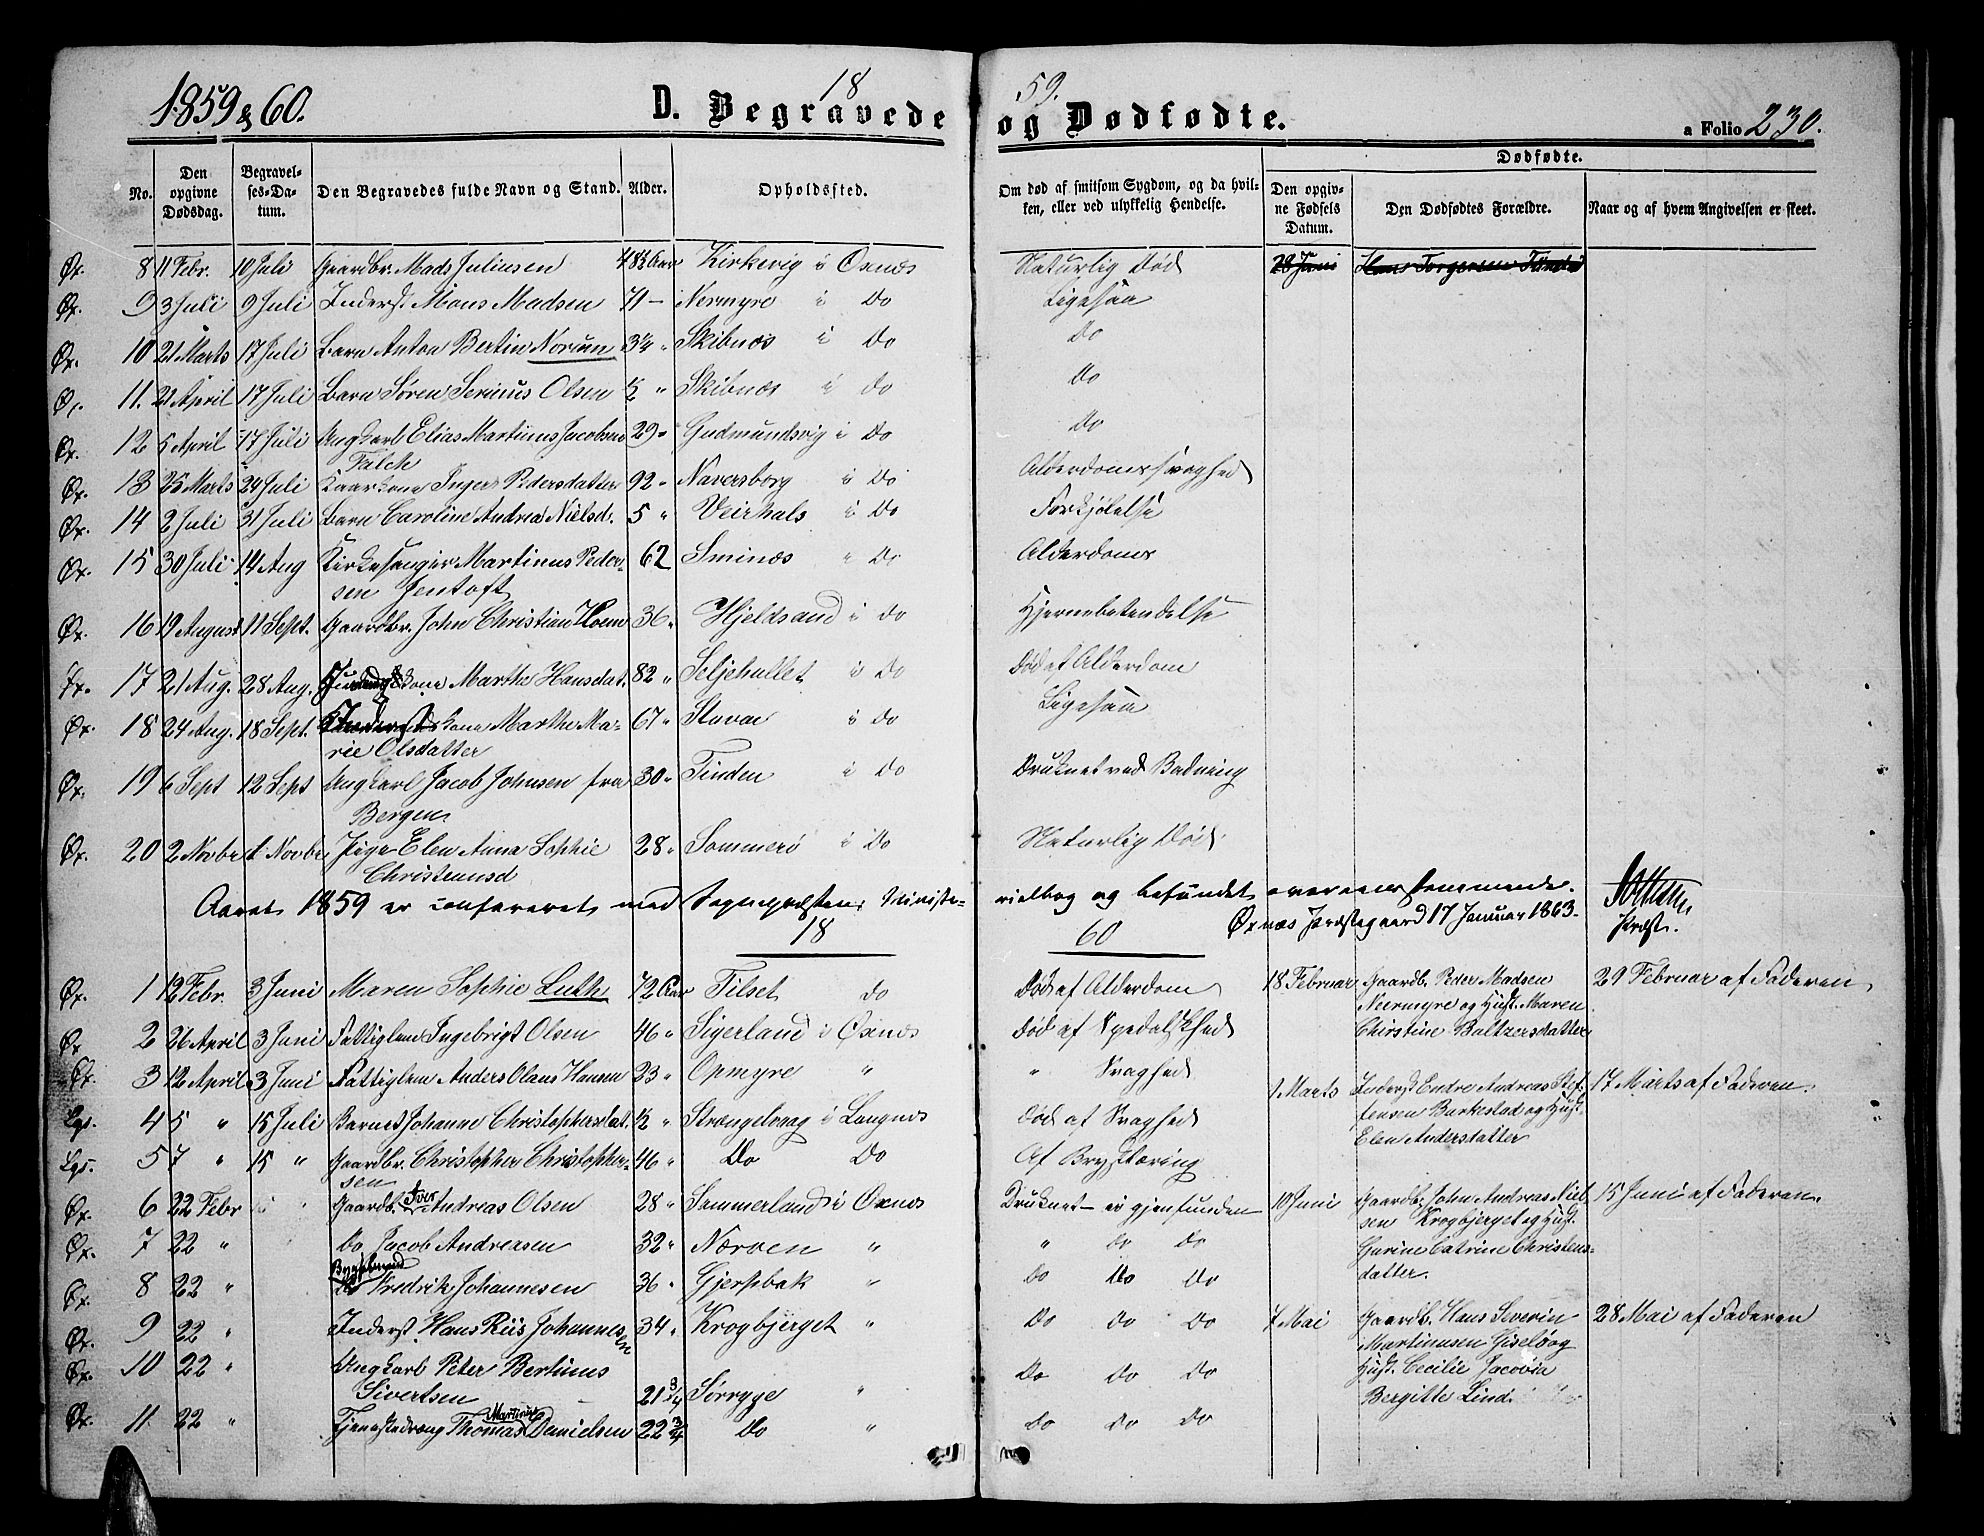 1859 & 60.
D. Begravede 18
59. og Dødfødte.
a Folio 230.
No.
Den opgivne Dødsdag.
Begravelses-Datum.
Den Begravedes fulde Navn og Stand.
Alder.
Opholdssted.
Om død af smitsom Sygdom, og da hvilken, eller ved ulykkelig Hendelse.
Dødfødte.
Den opgivne Fødsels Datum.
Den Dødfødtes Forældre.
Naar og af hvem Angivelsen er skeet.
Øx. 8 11 Febr. 10 Juli Gaardbr. Mads Juliusen Aar Kirkevig i Øxnæs Naturlig Død 28 Juni Hans Torgersen
Øx. 9 3 Juli 9 Juli Inderst Mons Madsen 71 – Nermyre i Do Ligesaa
Øx. 10 21 Marts 17 Juli Barn Anton Bertin Norum 3¼ " Skibnæs i Do Do
Øx. 11. 21 April 17 Juli Barn Søren Serinus Olsen ½ " Skibnæs i Do Do
Øx. 12 5 April 17 Juli Ungkarl Elias Martinus Jacobsen Falch 29 " Gudmundsvig i Do Do
Øx. 13 25 Marts 24 Juli Kaarkone Inger Pedersdatter 92 " Naversborg i Do Alderdomssvaghed
Øx. 14 2 Juli 31 Juli Barn Caroline Andrea Nielsd. 5 " Veirhals i Do Forkjølelse
Øx. 15 30 Juli 14 Aug Kirkesanger Martinus Pedersen Jentoft 62 Sminæs " Do Alderdoms
Øx. 16 19 August 11 Sept. Gaardbr. John Christian Hoem 36 " Hjeldsand i Do Hjernebetendelse
Øx. 17 21 Aug. 28 Aug. kone Martha Hansdat. 82 " Seljehullet i Do Død af Alderdom
Øx. 18 24 Aug. 18 Sept. kone Marthe Marie Olsdatter 67 " Stavae i Do Ligesaa
Øx. 19 6 Sept 12 Sept Ungkarl Jacob Johnsen fra Bergen 30 " Tinden i Do Druknet ved Badning
Øx. 20 2 Novbr Novbr Pige Elen Anna Sophie Christensd 28 " Sommerø i Do Naturlig Død.
Aaret 1859 er confereret med Sognepræstens Ministerialbog og befundet overeensstemmende.
Øxnæs Præstegaard 17 Januar 1863.
Præst.
18 60
Øx. 1 12 Febr. 3 Juni Maren Sophie Luth 72 Aar Tilset Do Død af Alderdom 18 Februar Gaardb. Peder Madsen Neermyre og Hust. Maren Chirstine Baltzersdatter 29 Februar af Faderen
Øx 2 26 April 3 Juni Fattiglem Ingebrigt Olsen 46 " Sigerland i Øxnæs Død af Spedalskhed
Øx. 3 12 April 3 Juni Fattiglem Anders Olaus Hansen 23 " Opmyre " " Svaghed 1 Marts Inderst Endre Andreas Steffensen Barkestad og Hust. Elen Andersdatter 17 Marts af Faderen.
Lgs. 4 5 " 15 Juli Barnet Johanne Christophersdat. ½ " Strængelvaag i Langnæs Død af Svaghed
Lgs. 5 7 " 15 " Gaardbr. Christopher Christophersen 46 " Do Do Af Brysttæring
Øx. 6 22 Febr " " Gaardb. Iver Andreas Olsen 28 " Sommerland i Øxnæs Druknet – ei gjenfunden 10 Juni Gaardbr. John Andreas Nielsen Krogbjerget og Hust. Gurine Catrine Christensdatter. 15 Juni af Faderen.
Øx. 7 22 " Do Jacob Andreasen 32 " Nærven " " Do Do
Øx. 8 22 " Fredrik Johannesen 36 " Gjerpbak " Do Do Do
Øx. 9 22 " Inderst Hans Riis Johannesen 34 " Krogbjerget " Do Do Do 7 Mai Gaardb. Hans Severin Martinusen Giselø og Hust. Cecilie Jacobia Bergitte Lind. 28 Mai af Faderen
Øx. 10 22 " Ungkarl Peter Bertinus Sivertsen 21 ¾ Sørrygge " Do Do Do
Øx. 11. 22 " Tjenestedreng Thomas Martinus Danielsen 22 ¾ Do " Do Do Do